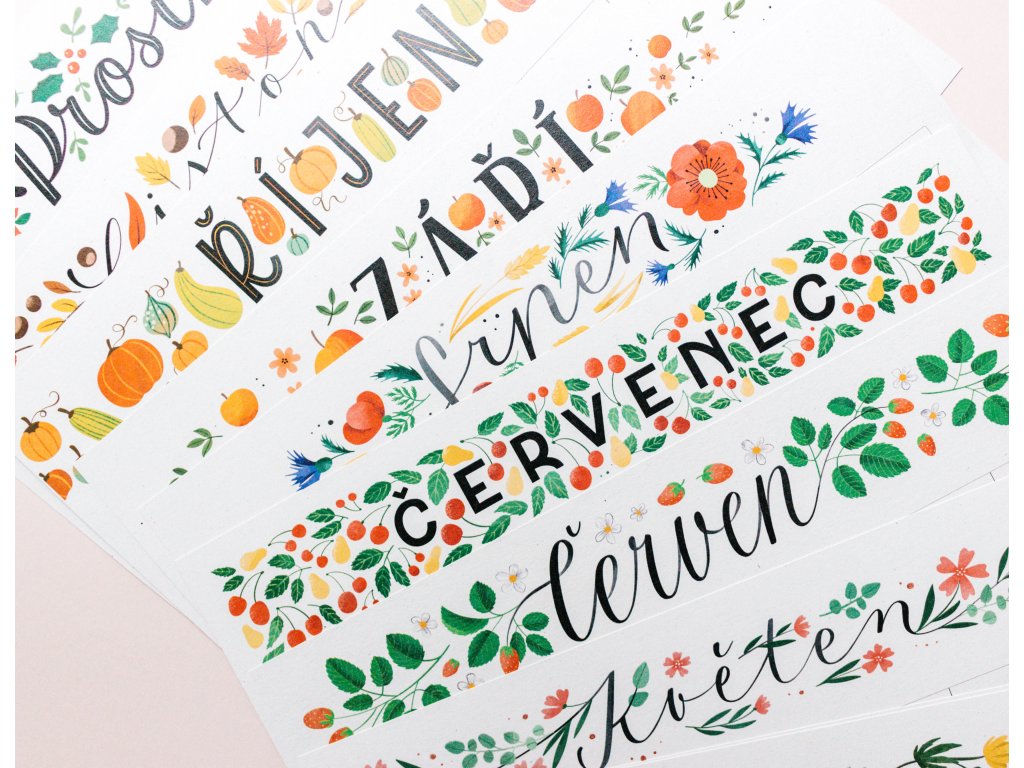 Prosi
Liston
ŘÍJEN
ZÁŘÍ
Srpen
ČERVENEC
Červen
Květen